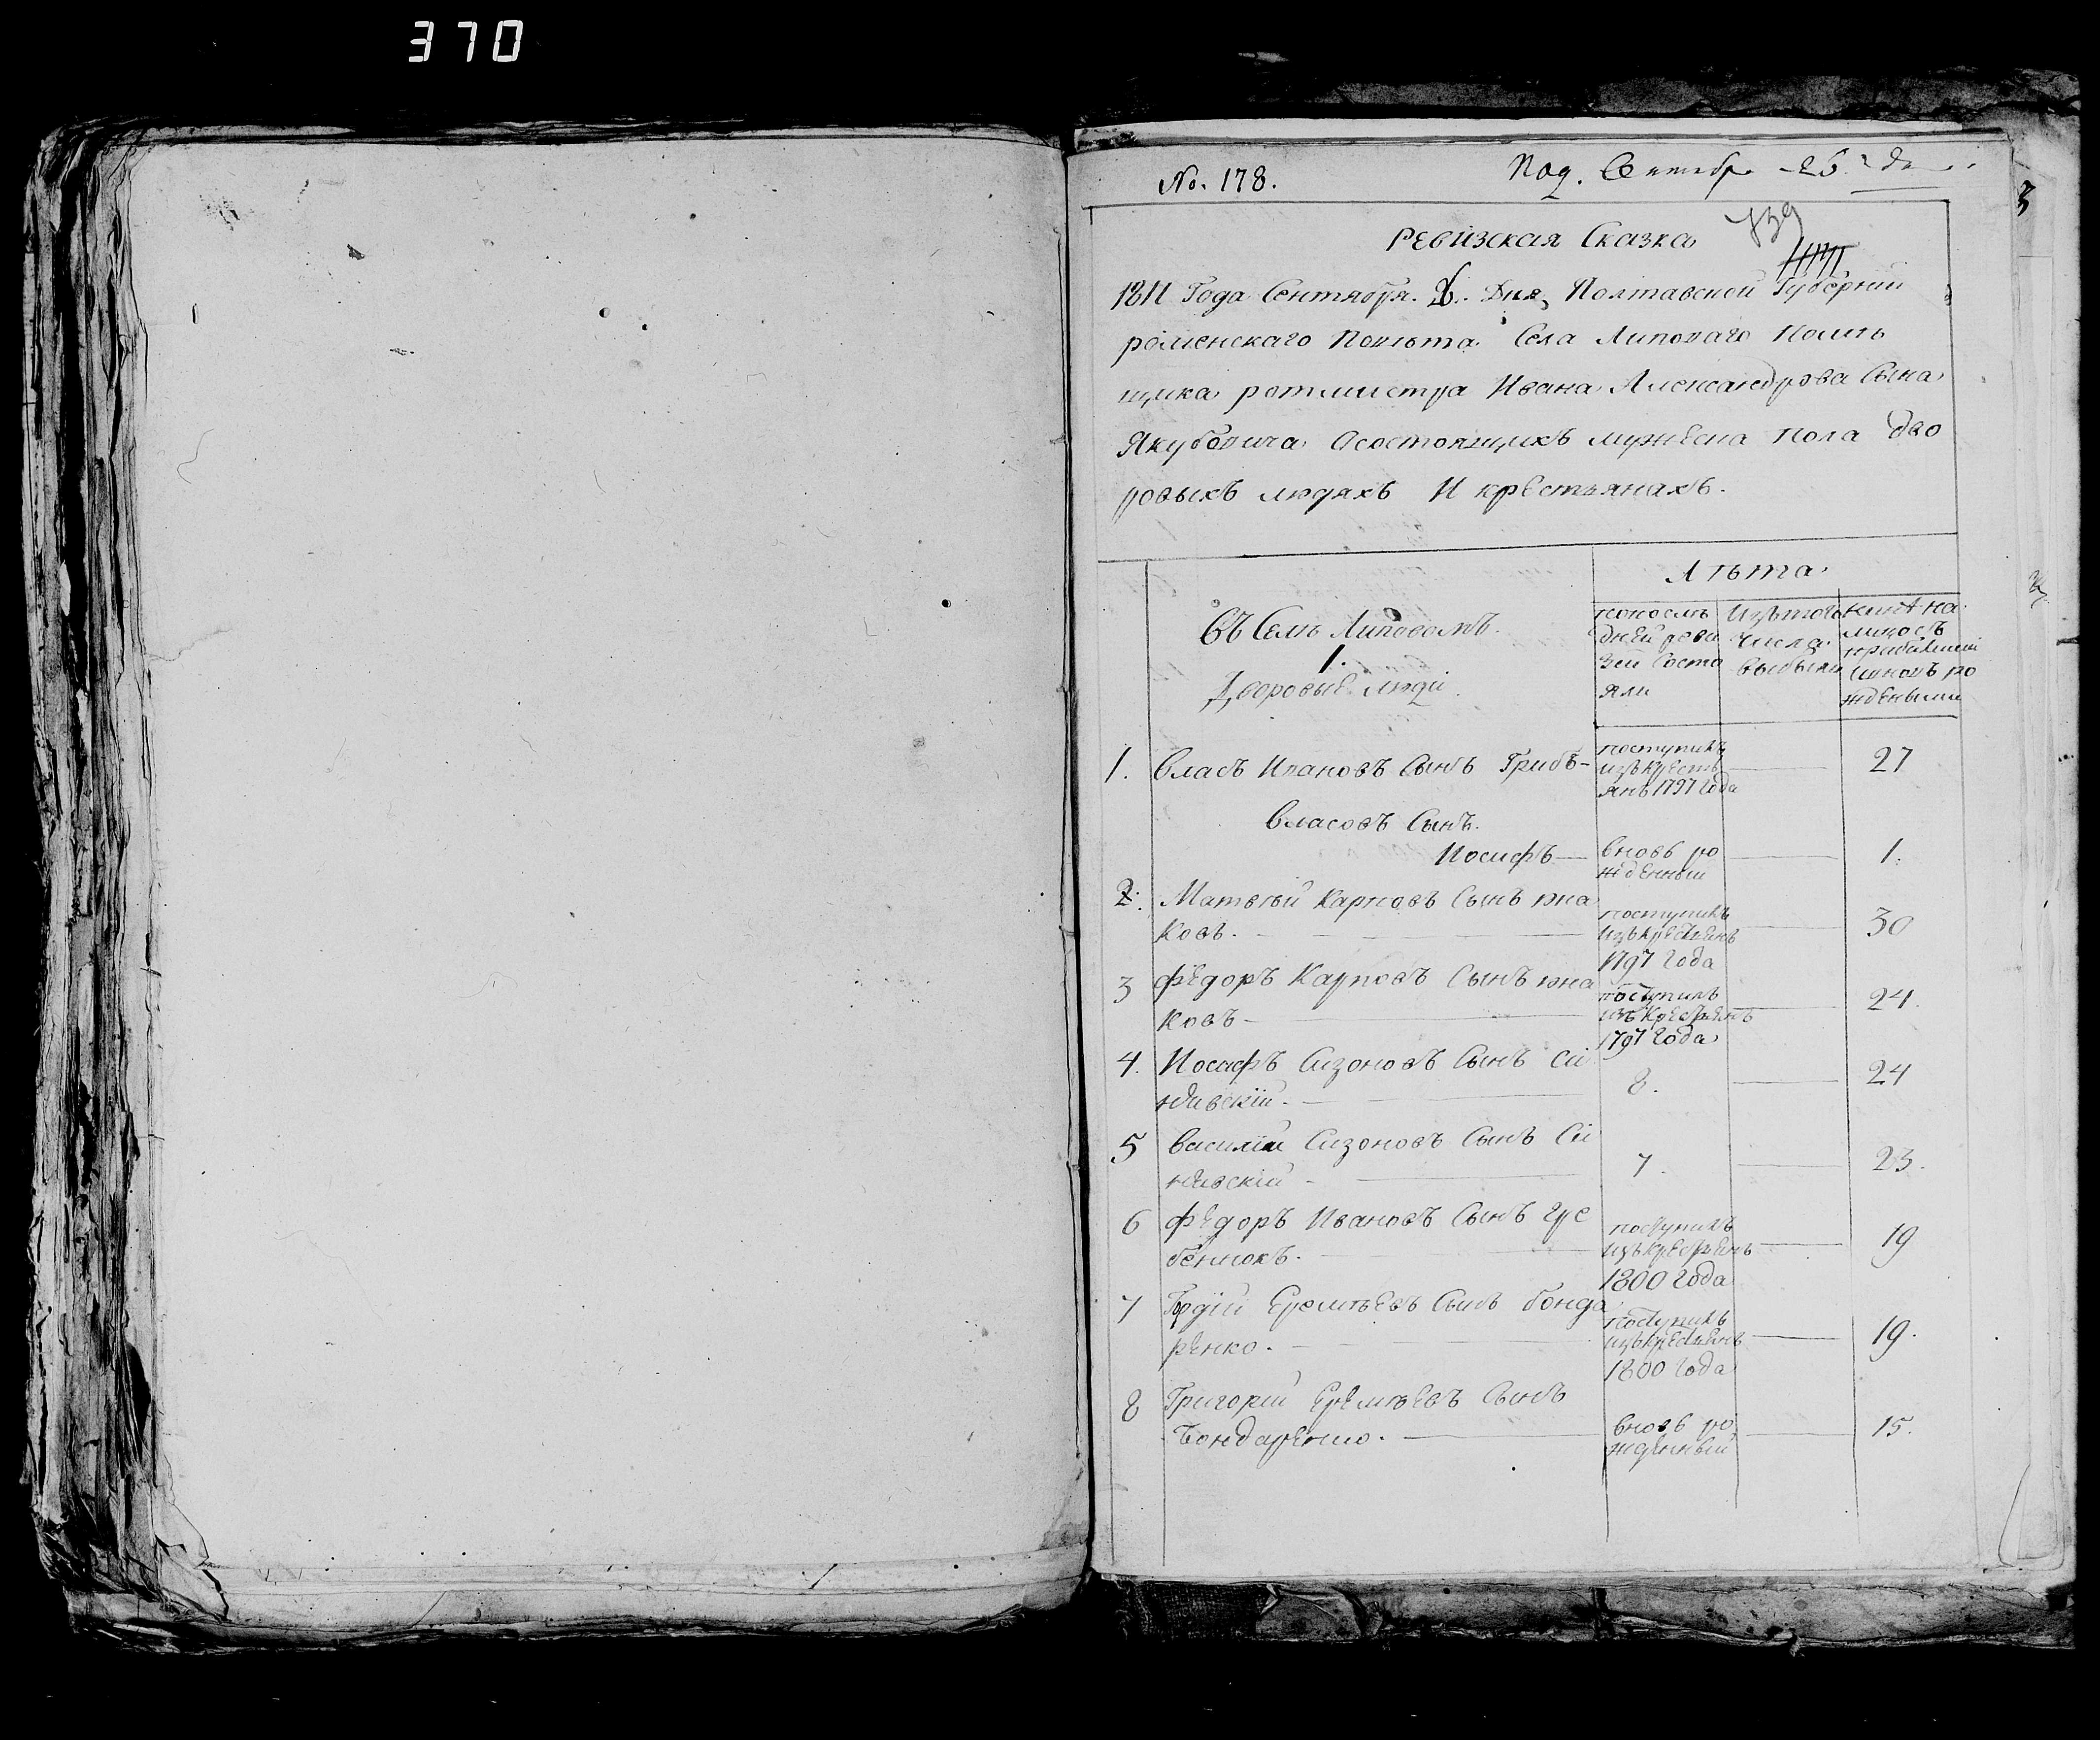 370
No. 178.
Под. Сентябр 25 г дн
3
739
Ревизская Сказка
1811 Года Сентября. Дня, Полтавской Губернии
роменского Повѣта Села Липоваго Помѣ
щика ротмистра Ивана Александрова Сына
Якубовича Осостоящихъ мужеска пола дво
ровыхъ людяхъ И крестьянахъ.
Лѣта.
Въ Селѣ Липовомъ.
1.
Дворовые люди
попослѣ
дней реви
зей состо
яли
Изътого
числа
выбыли
нынѣ на
лицо съ
прибылыми
и вновь ро
ждеными
1. Власъ Ивановъ Сынъ Грибъ — поступилъ изъкресть янъ 1797 Года — 27
Власовъ Сынъ.
Иосифъ — вновь ро жденный — 1.
2. Матвѣй Карповъ Сынъ юна
ковъ. — поступилъ изъкрестьянъ 1797 Года — 30
3 Федоръ Карповъ Сынъ юна
ковъ — поступилъ изъ крестьянъ 1797 Года — 24.
4. Иосафъ Сизоновъ Сынъ Си
нявский. — 8. — 24
5 Василии Сизоновъ Сынъ Си
нявский — 7. — 23.
6 Федоръ Ивановъ Сынъ Гре
бенюкъ. — поступилъ изъкрестьянъ 1800 Года — 19
7 Гордiй Еремѣевъ Сынъ бонда
ренко. — поступилъ изъкрестьянъ 1800 Года — 19.
8 Григорий Еремѣевъ Сынъ
Бондаренко. — вновь ро жденный — 15.